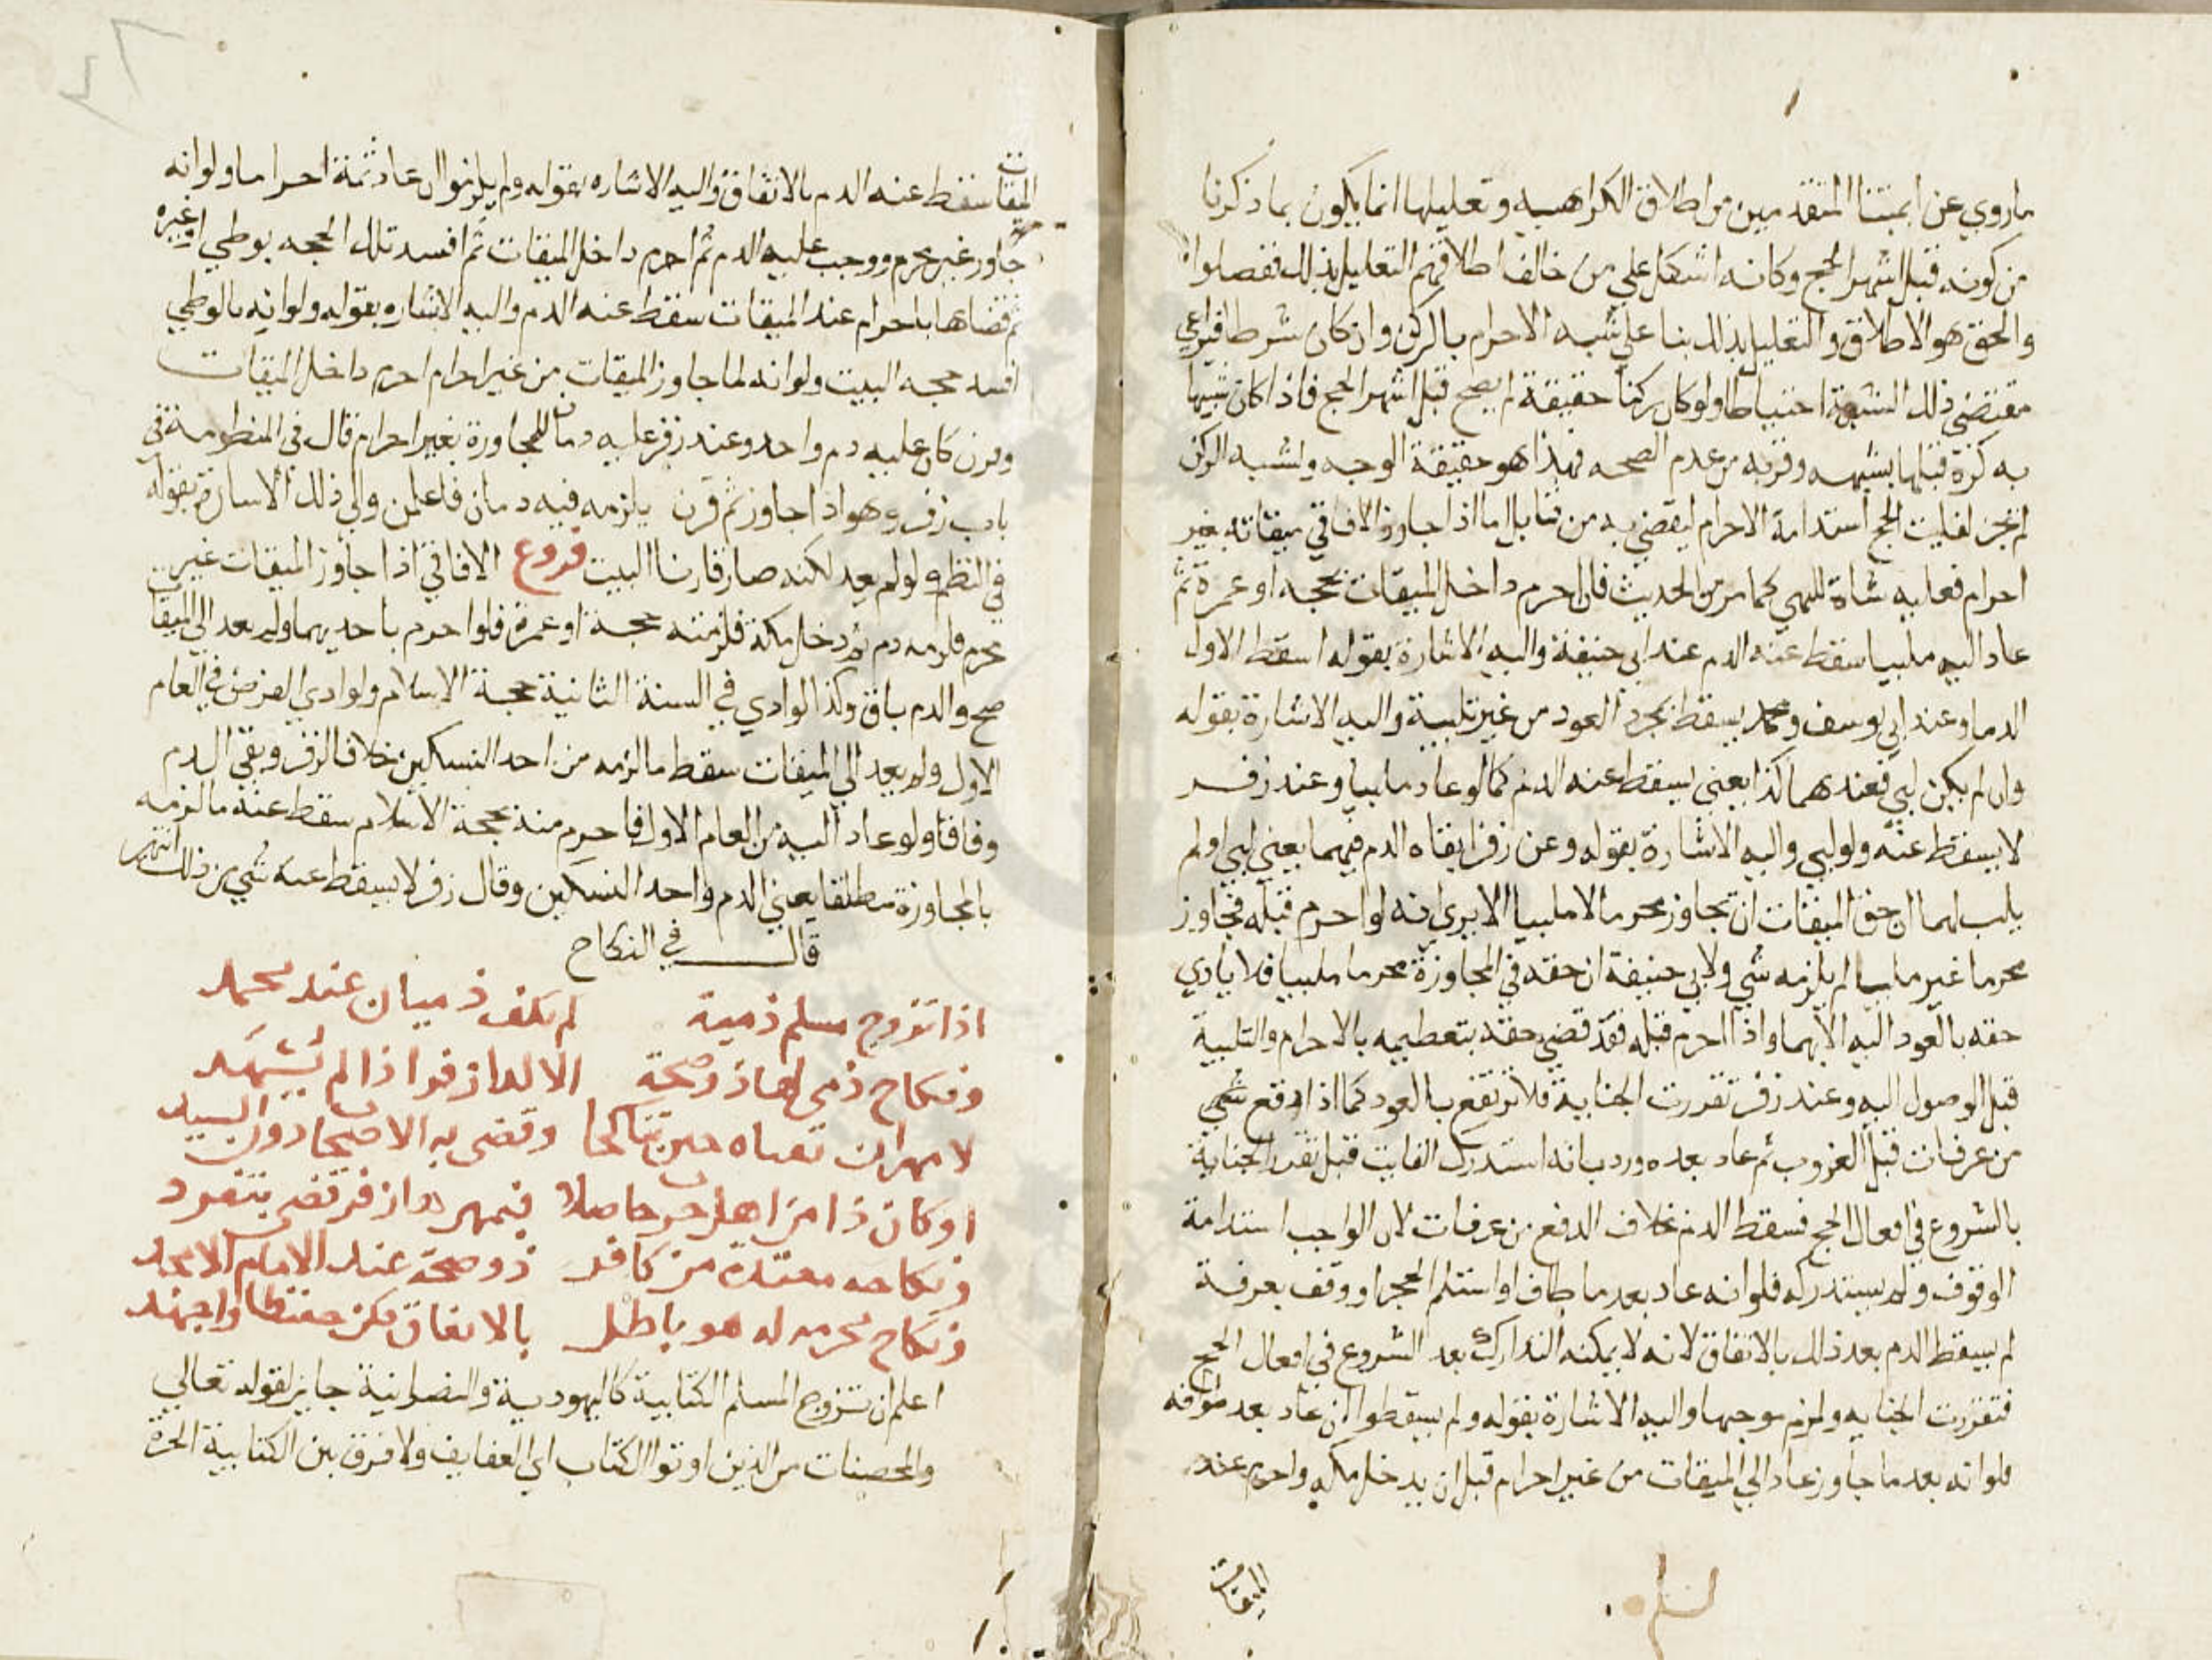 ماروي عن ايمتنا المتقدمين من اطلاق الكراهيه وتعليلها انما يكون بما ذكرنا
من كونه قبل اشهر الحج وكانه اشكل علي من خالف اطلاقهم التعليل بذلك ففصلوا
والحق هو الاطلاق والتعليل بذلك بنا علي شبه الاحرام بالركن وان كان شرطا فيراعي
مقتضي ذلك الشبه احتياطا ولو كان ركنا حقيقة لم يصح قبل اشهر الحج فاذا كان شبيها
به كره قبلها بشبهه وقربه من عدم الصحه فهذا هو حقيقة الوجه ولشبه الركن
لم تجز لفايت الحج استدامة الاحرام ليقضي به من قابل اما اذا جاوز الافاقي ميقاته بغير
احرام فعليه شاة للنهي كما مر من الحديث فان احرم داخل الميقات بحجه او عمرة ثم
عاد اليه ملبيا سقط عنه الدم عند ابي حنيفة واليه الاشارة بقوله اسقط الاول
الدما وعند ابي يوسف ومحمد يسقط بمجرد العود من غير تلبية واليه الاشارة بقوله
وان لم يكن لبي فعندهما كذا يعني يسقط عنه الدم كما لو عاد ملبيا وعند زفر
لا يسقط عنه ولو لبي واليه الاشارة بقوله وعن زفر ابقاه الدم فيهما يعني لبي اولم
يلب لهما ان حق الميقات ان تجاوز محرما لا ملبيا الا يري انه لو احرم قبله فجاوز
محرما غير ملبيا لم يلزمه شي ولابي حنيفة ان حقه في المجاوزة محرما ملبيا فلا يتادي
حقه بالعود اليه الا بهما واذا احرم قبله فقد قضي حقه بتعظيمه بالاحرام والتلبية
قبل الوصول اليه وعند زفر تقررت الجناية فلا ترتفع بالعود كما اذا دفع شي
من عرفات قبل الغروب ثم عاد بعده ورد بانه استدرك الفايت قبل تقرر الجناية
بالشروع في افعال الحج فسقط الدم بخلاف الدفع من عرفات لان الواجب استدامة
الوقوف ولم يستدركه فلو انه عاد بعد ما طاف او استلم الحجر او وقف بعرفة
لم يسقط الدم بعد ذلك بالاتفاق لانه لا يمكنه التدارك بعد الشروع في افعال الحج
فتقررت الجنايه ولزم موجبها واليه الاشارة بقوله ولم يسقطوا ان عاد بعد طوافه
فلو انه بعد ما جاوز عاد الي الميقات من غير احرام قبل ان يدخل مكه واحرم عند
الميقات
الميقات سقط عنه الدم بالاتفاق واليه الاشاره بقوله ولم يلزموا ان عاد ثمة احراما ولو انه
جاوز غير محرم ووجب عليه الدم ثم احرم داخل الميقات ثم افسد تلك الحجه بوطي او غيره
ثم قضاها باحرام عند الميقات سقط عنه الدم واليه الاشاره بقوله ولو انه بالوطي
افسد حجه البيت ولو انه لما جاوز الميقات من غير احرام احرم داخل الميقات
وقرن كان عليه دم واحد وعند زفر عليه دمان للمجاوزة بغير احرام قال في المنظومة في
باب زفر وهو اذا جاوز ثم قرن يلزمه فيه دمان فاعلمن والي ذلك الاشارة بقوله
في النظم ولو لم يعد لكنه صار قارنا البيت فروع الافاقي اذا جاوز الميقات غير
محرم فلزمه دم ثم دخل مكة فلزمته حجة او عمرة فلو احرم باحديهما ولم يعد الي الميقات
صح والدم باق وكذا لو ادي في السنة الثانية حجة الاسلام ولو ادي الفرض في العام
الاول ولم يعد الي الميقات سقط ما لزمه من احد النسكين خلافا لزفر وبقي الدم
وفاقا ولو عاد اليه من العام الاول فاحرم منه بحجة الاسلام سقط عنه ما لزمه
بالمجاوزة مطلقا يعني الدم واحد النسكين وقال زفر لا يسقط عنه شي من ذلك انتهي
قال في النكاح
اذا تزوج مسلم ذمية لم يكف ذميان عند محمد
ونكاح ذمي لهذا ذو صحة الا لدا زفر اذا لم يشهد
لا مهر ان نفياه حين تناكحا وقضي به الاصحاب دون السيد
او كان ذا من اهل حرب حاصلا فبمهر هذا زفر قضي بتفرد
ونكاحه معتدة من كافر ذو صحة عند الامام الامجد
ونكاح محرمه له هو باطل بالاتفاق فكن حفيظا واجهد
اعلم ان تزوج المسلم الكتابية كاليهودية والنصرانية جايز لقوله تعالي
والمحصنات من الذين اوتوا الكتاب اي العفايف ولا فرق بين الكتابية الحرة